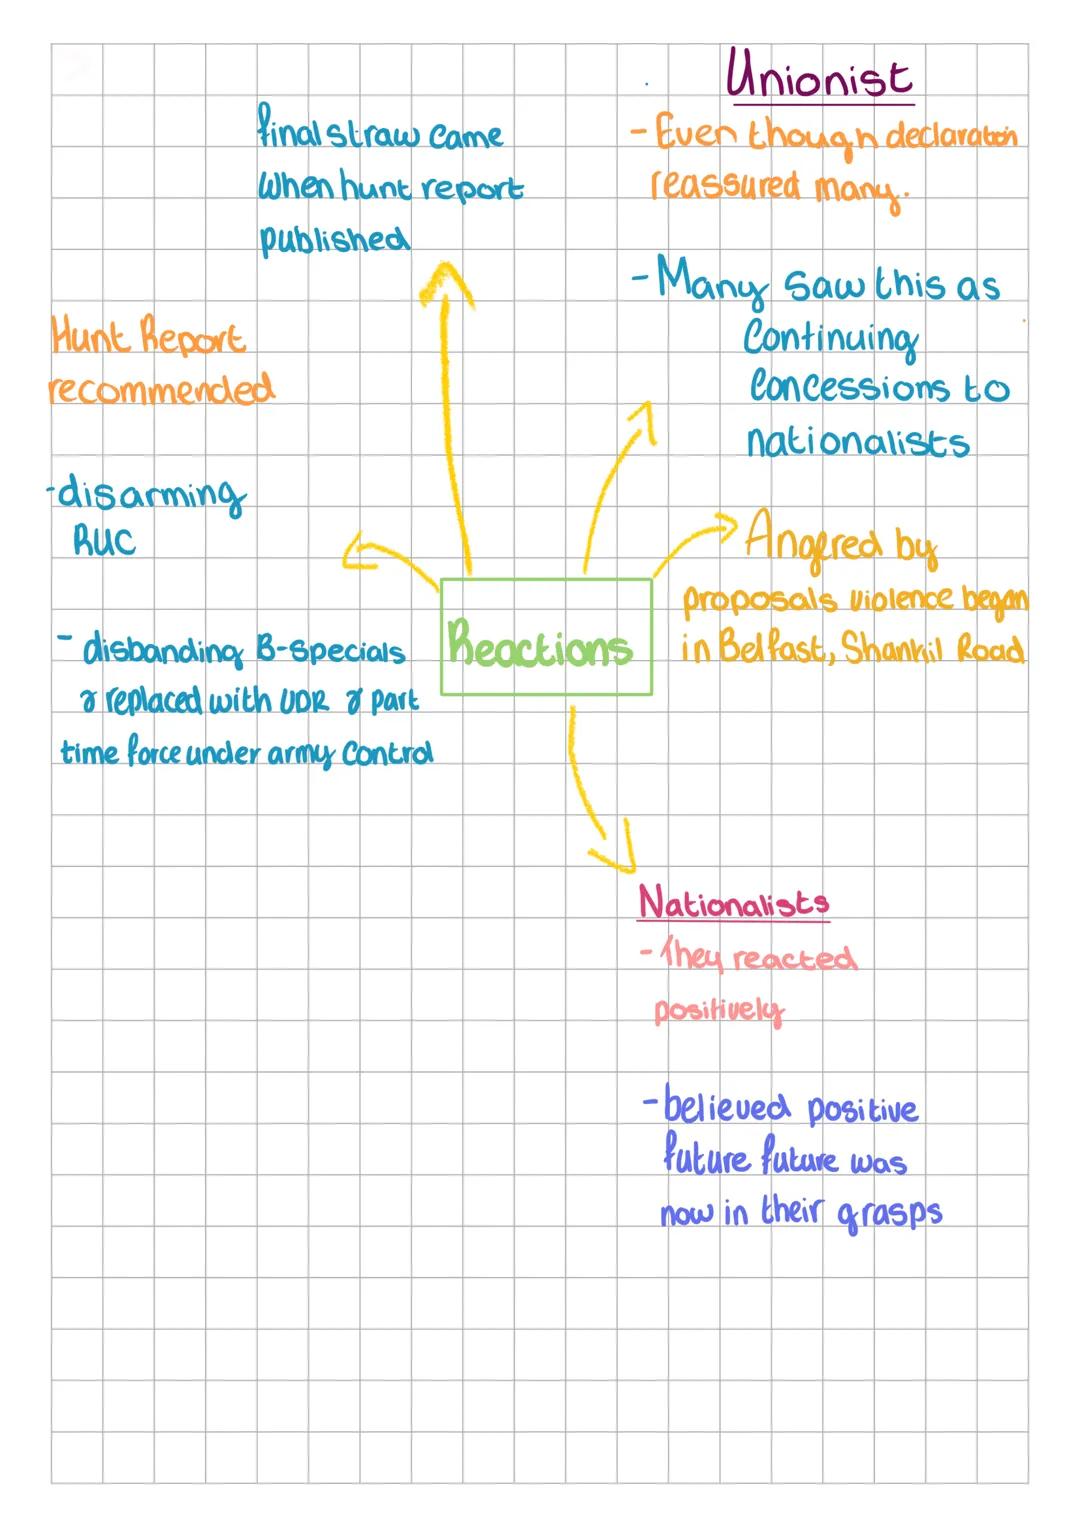 Unionist
- Even though declaration
reassured many.
- Many saw this as
Continuing
Concessions to
nationalists
Angered by
proposals violence began
in Belfast, Shankil Road
final straw came
when hunt report
published
Hunt Report
recommended
- disarming
RUC
- disbanding B-Specials
& replaced with UDR & part
time force under army control
Reactions
Nationalists
- They reacted
positively
- believed positive
future future was
now in their grasps